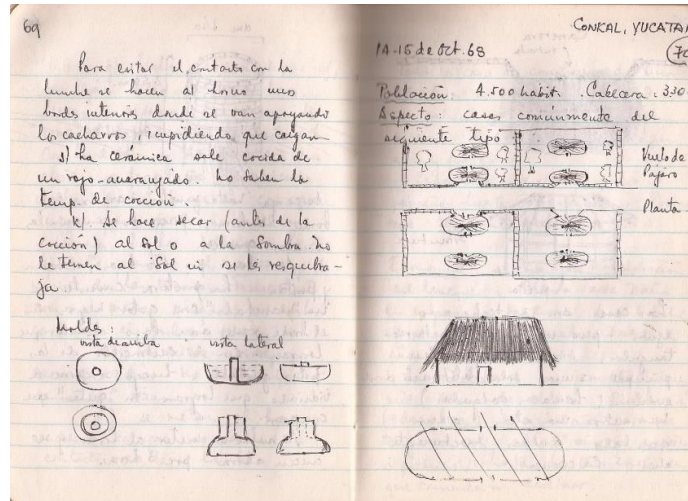 69
Para evitar el contacto con la
lumbre se hacen al horno unos
bordes interiores donde se van apoyando
los cacharros, impidiendo que caigan
j) La cerámica sale cocida de
un rojo-anaranjado. No saben la
temp. de cocción.
k) Se hace secar (antes de la
cocción) al sol o a la sombra. No
le temen al sol ni se les resquebra-
ja.
Moldes:
vista de arriba vista lateral
CONKAL, YUCATAN
14-15 de Oct. 68
70
Población: 4.500 habit. Cabecera: 330
Aspecto: casas comúnmente del
siguiente tipo
Vuelo de
Pájaro
Planta